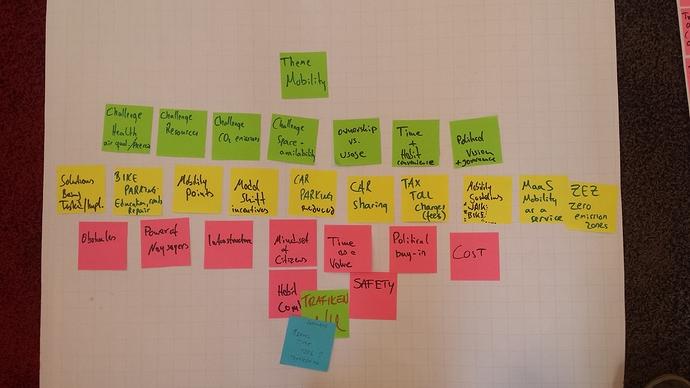 Theme
Mobility
Challenge
Health
air qual./
Challenge
Resources
Challenge
CO2 emissions
Challenge
Space +
availability
ownership
vs.
usage
Time
+
Habit
convenience
Political
Vision
+ governance
Solutions
Being
Tested/Impl.
BIKE
PARKING:
Education,
Repair
Mobility
Points
Modal
Shift
incentives
CAR
PARKING
reduced
CAR
sharing
TAX
TOLL
charges
(fees)
Mobility
WALK
BIKE
MaaS
Mobility
as a
service
ZEZ
Zero
emission
zones
Obstacles
Power of
Naysayers
Infrastructure
Mindset
of
Citizens
Time
as a
Value
Political
buy-in
COST
Habit
Com
TRAFIKEN
SAFETY